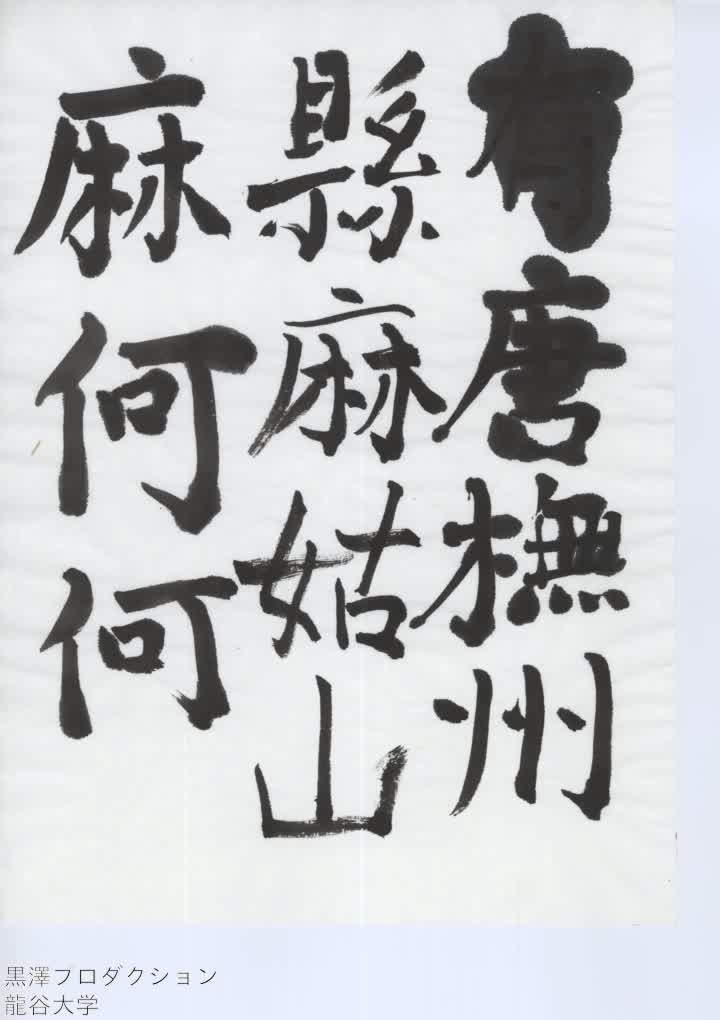 有唐橅州
縣麻姑山
麻何何
黒澤プロダクション
龍谷大学